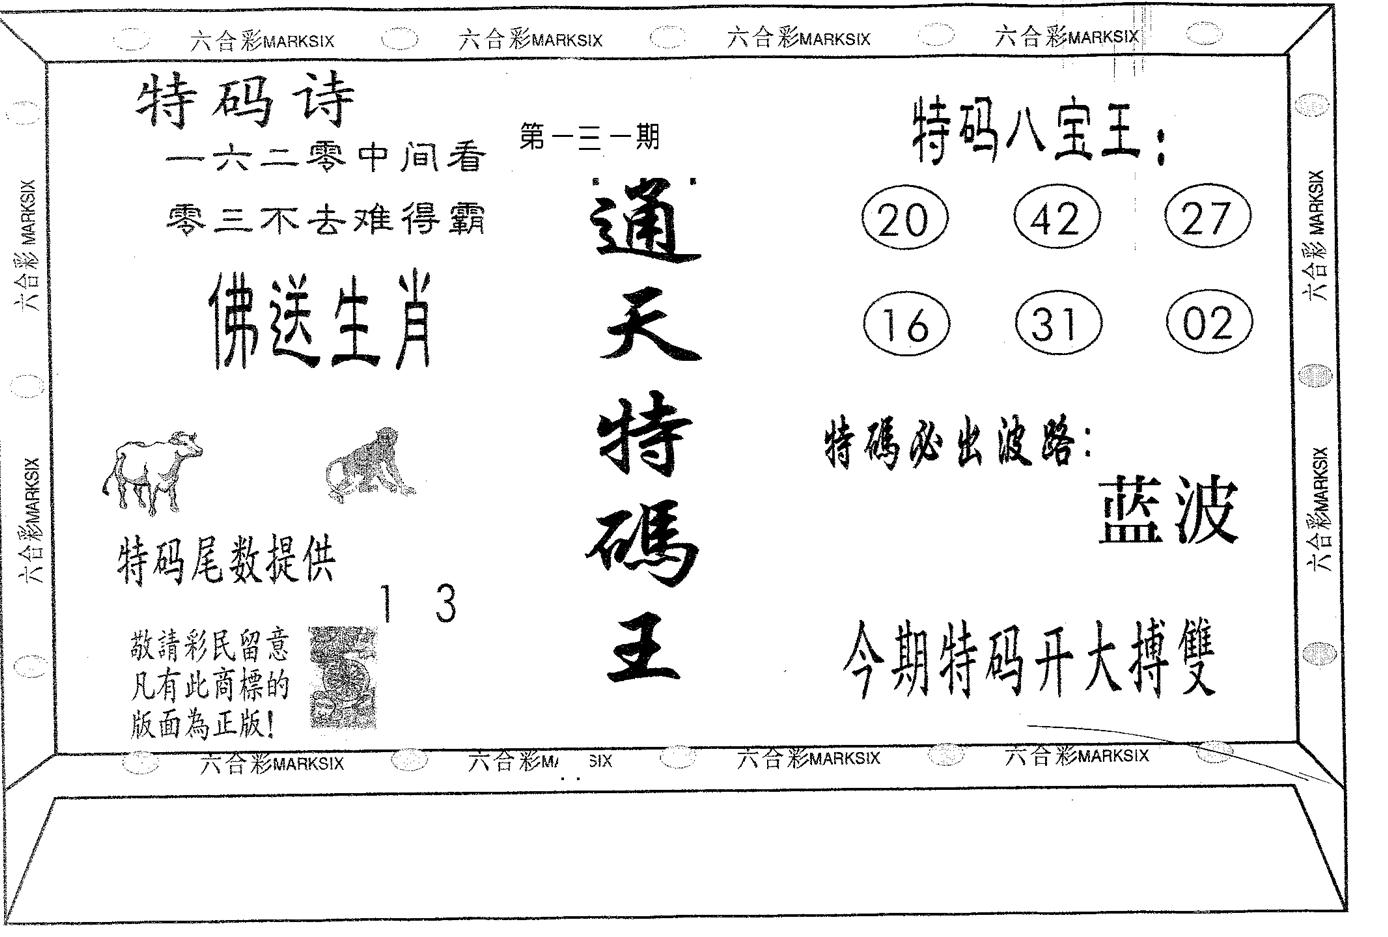 六合彩MARKSIX 六合彩MARKSIX 六合彩MARKSIX 六合彩MARKSIX
特码诗
一六二零中间看
零三不去难得霸
佛送生肖
特码尾数提供
1 3
敬請彩民留意
凡有此商標的
版面為正版!
第一三一期
通天特碼王
特码八宝王:
20 42 27
16 31 02
特碼必出波路:
蓝波
今期特码开大搏雙
六合彩MARKSIX
六合彩MARKSIX
六合彩MARKSIX
六合彩MARKSIX
六合彩MARKSIX 六合彩MA SIX 六合彩MARKSIX 六合彩MARKSIX